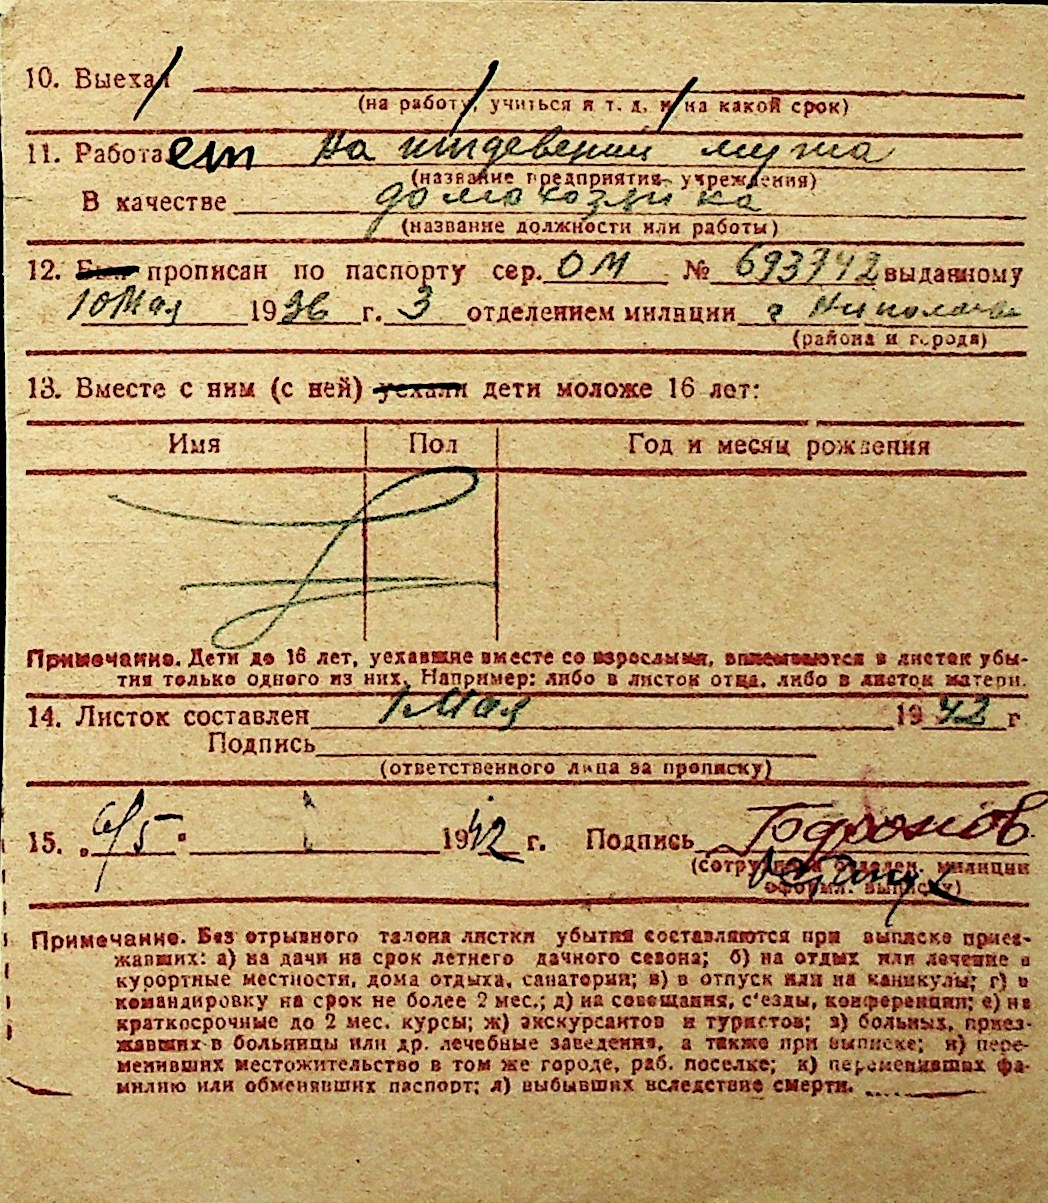 10. Выехал
(на работу, учиться и т. д. и на какой срок)
11. Работает На иждевении мужа
(название предприятия учреждения)
В качестве домохозяика
(название должности или работы)
12. Был прописан по паспорту сер. ОМ № 693742 выданному
10 Мая 1936 г. 3 отделением милиции г Николаева
(района и города)
13. Вместе с ним (с ней) уехали дети моложе 16 лет:
Имя Пол Год и месяц рождения
Примечание. Дети до 16 лет, уехавшие вместе со взрослыми, вписываются в листок убы-
тия только одного из них. Например: либо в листок отца, либо в листок матери.
14. Листок составлен 1 Мая 1942 г
Подпись
(ответственного лица за прописку)
15. „6/5" 1942 г. Подпись
(сотрудника отделен. милиции
оформл. выписку)
Примечание. Без отрывного талона листки убытия составляются при выписке приез-
жавших: а) на дачи на срок летнего дачного сезона; б) на отдых или лечение в
курортные местности, дома отдыха, санатории; в) в отпуск или на каникулы; г) в
командировку на срок не более 2 мес.; д) на совещания, с'езды, конференции; е) на
краткосрочные до 2 мес. курсы; ж) экскурсантов и туристов; з) больных, приез-
жавших в больницы или др. лечебные заведения, а также при выписке; и) пере-
менивших местожительство в том же городе, раб. поселке; к) переменивших фа-
милию или обменявших паспорт; л) выбывших вследствие смерти.